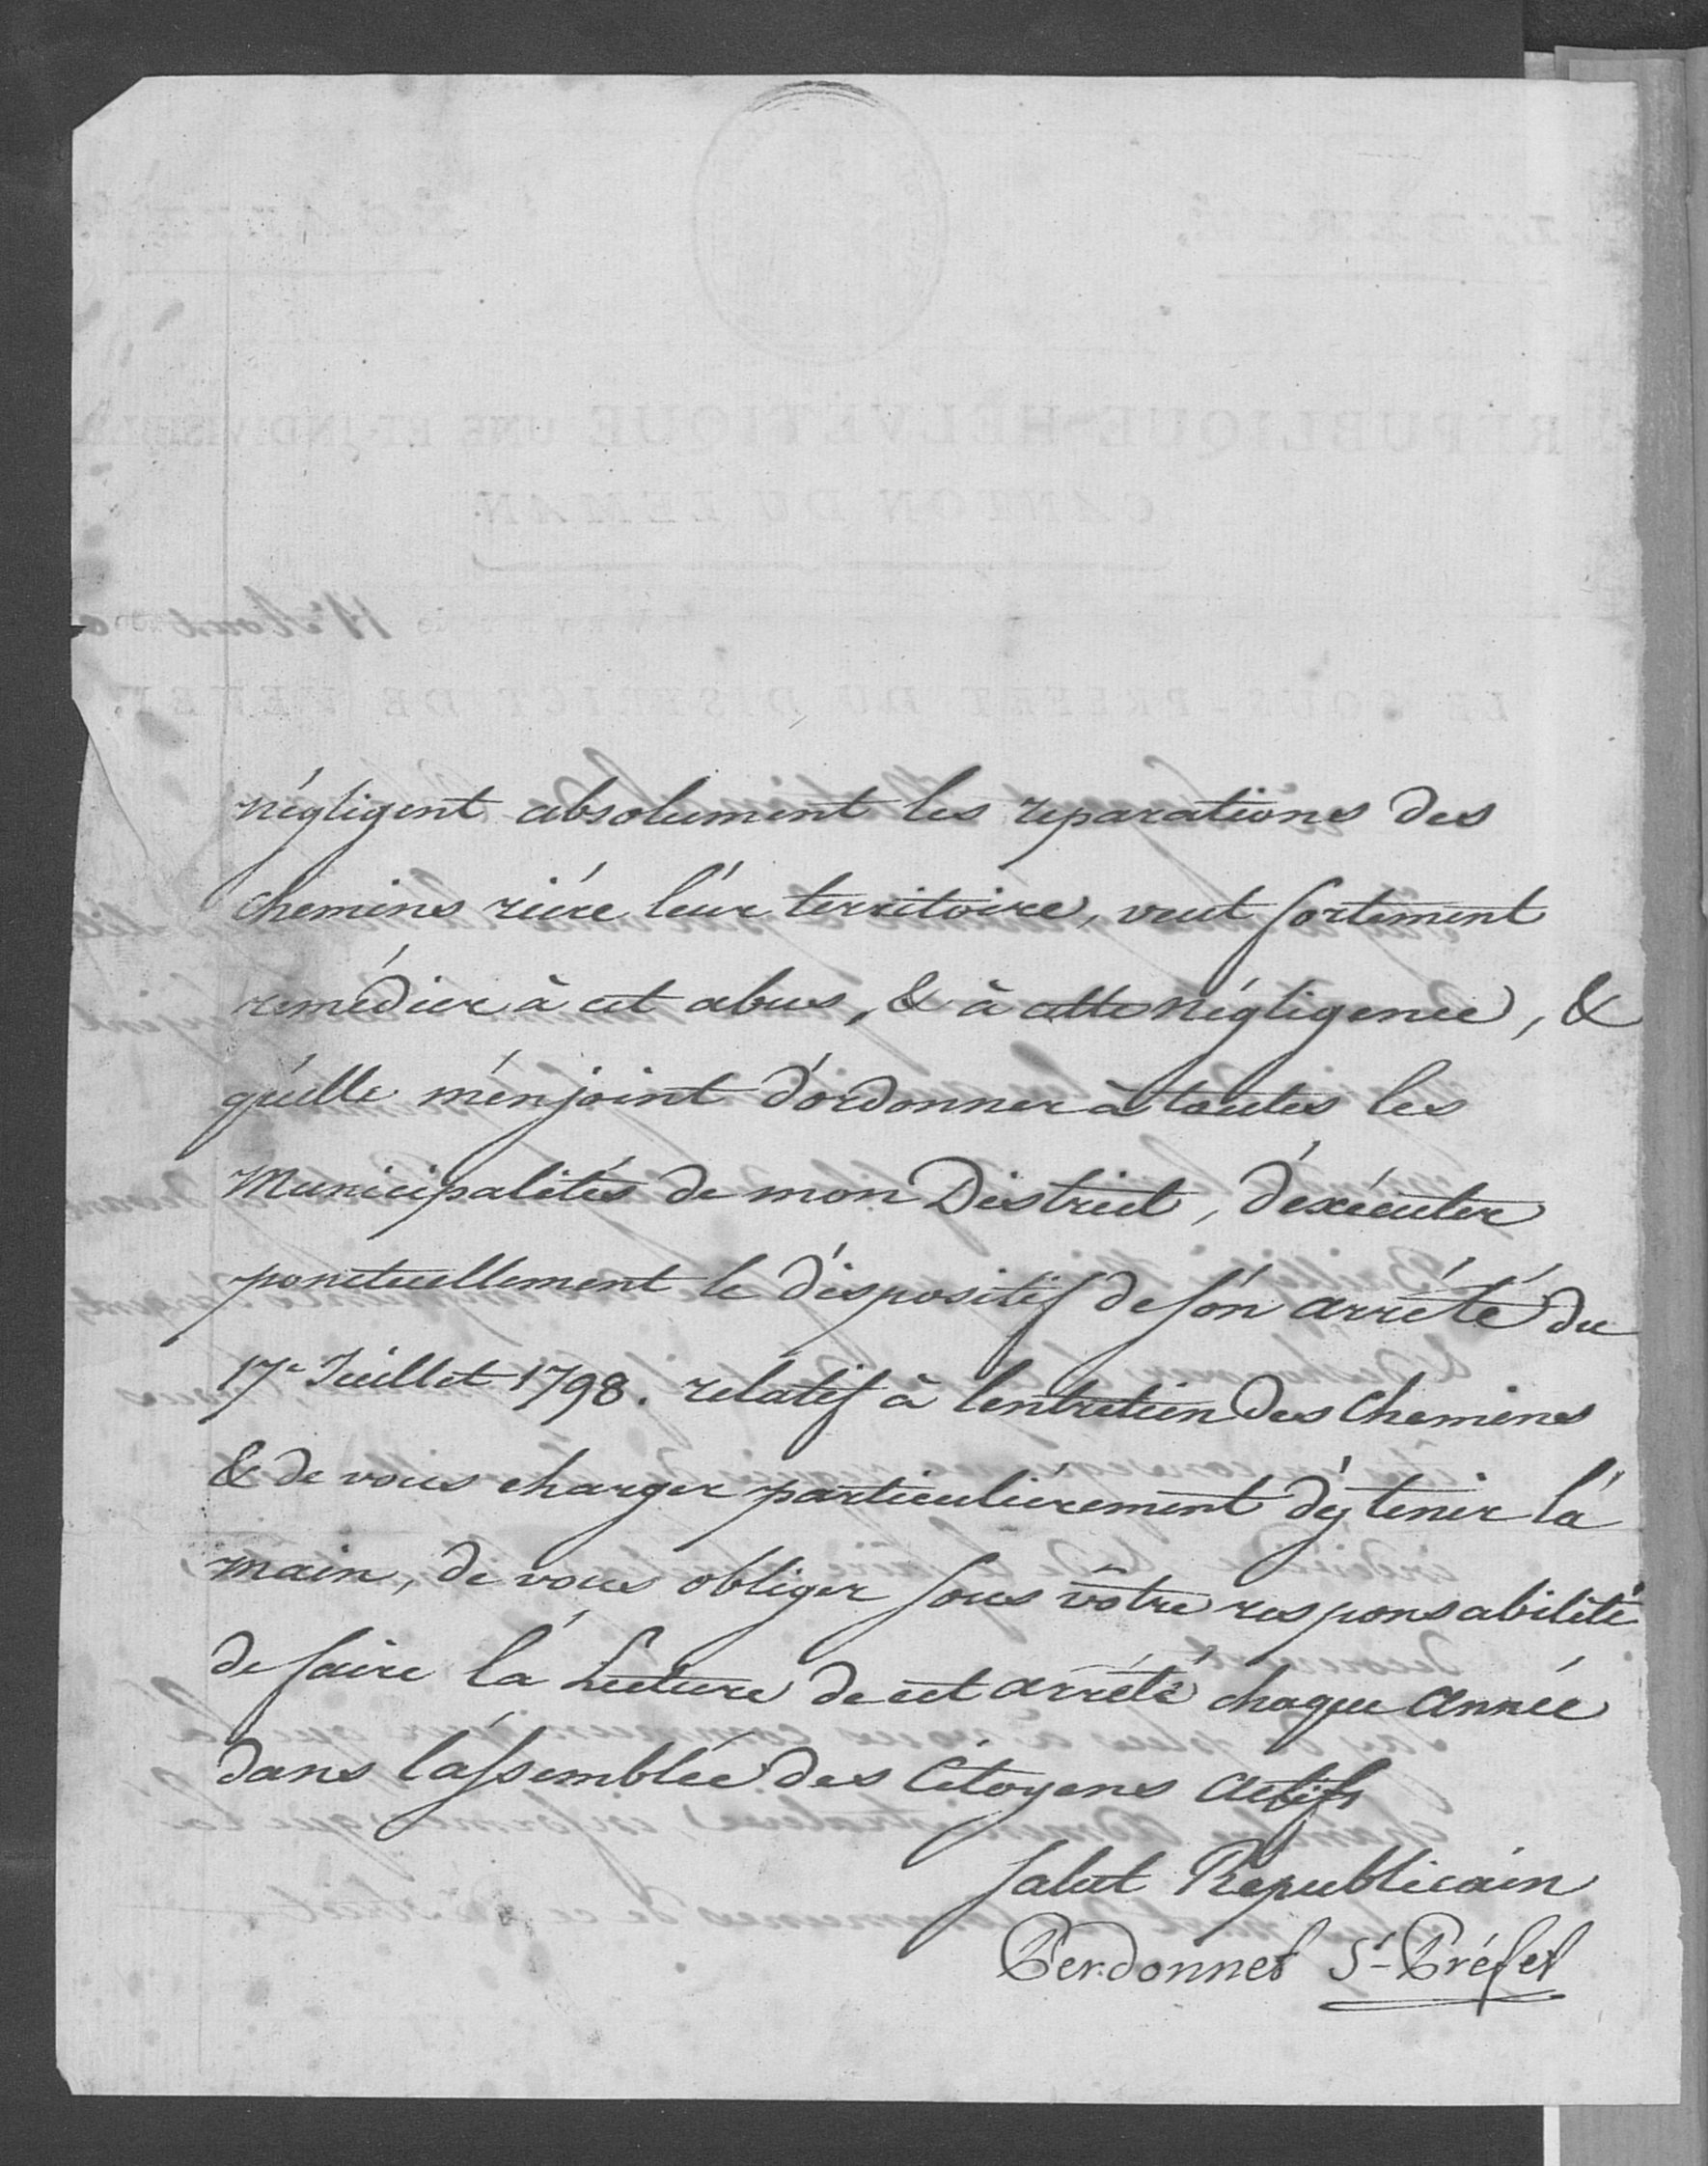 négligent absolument les reparations des
chemins riére leur territoire, veut fortement
remédier à cet abus, & à cette négligence, &
qu'elle m'enjoint d'ordonner à toutes les
Municipalités de mon District, d'exécuter
ponctuellement le dispositif de son arrété du
17e Juillet 1798. relatif à l'entretien des Chemins
& de vous charger particuliérement d'y tenir la
main, de vous obliger sous vôtre responsabilité
de faire la Lecture de cet arrété chaque Année
dans l'assemblée des Citoyens actifs
Salut Republicain
Perdonnet S-Préfet